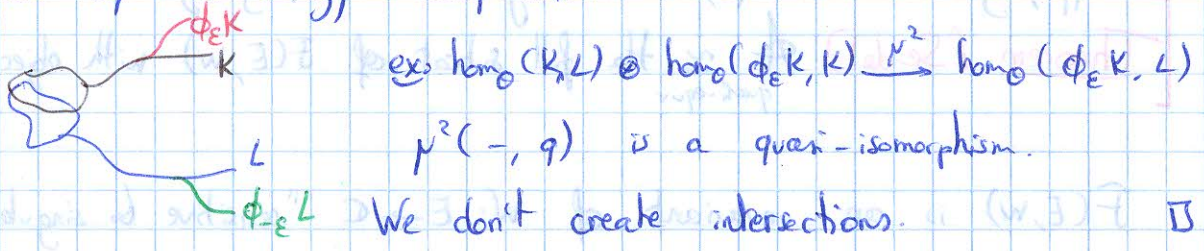 ϕ_ε K
K
ex: hom_Θ (K, L) ⊗ hom_Θ (ϕ_ε K, K) —μ²→ hom_Θ (ϕ_ε K, L)
μ²(−, q) is a quasi-isomorphism.
L
ϕ_{-ε} L We don't create intersections. □